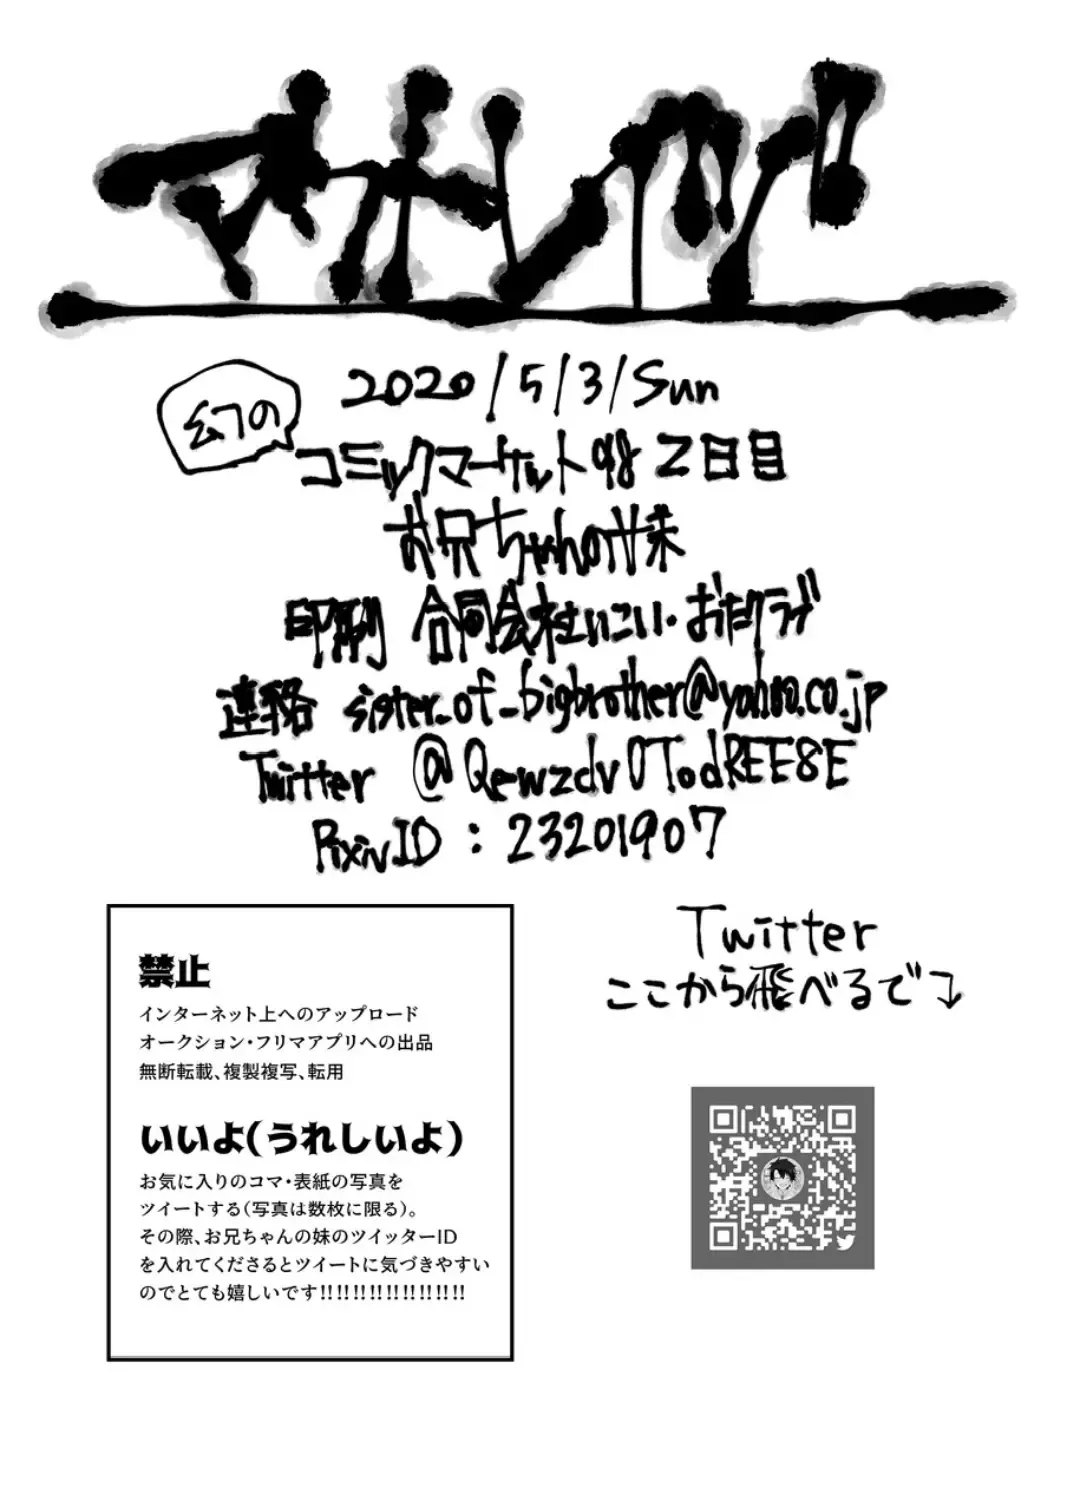 マオレツ
2020/5/3/Sun
幻の
コミックマーケット98 2日目
お兄ちゃんの妹
印刷 合同会社いこい・おたクラブ
連絡 sister_of_bigbrother@yahoo.co.jp
Twitter @Qewzdv0TodREE8E
PixivID：23201907
禁止
インターネット上へのアップロード
オークション・フリマアプリへの出品
無断転載、複製複写、転用
いいよ(うれしいよ)
お気に入りのコマ・表紙の写真を
ツイートする(写真は数枚に限る)。
その際、お兄ちゃんの妹のツイッターID
を入れてくださるとツイートに気づきやすい
のでとても嬉しいです!!!!!!!!!!!!!!!!!!
Twitter
ここから飛べるで↴